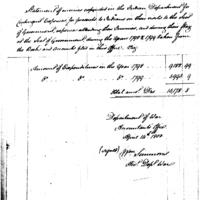 Statement of monies expended in the Indian Department for
Contingent Expences, for presents to Indians on their visits to the Seat
of Government, expences attending their Journies, and during their stay
at the Seat of Government during the Years 1798 & 1799 taken from
the Books and accounts filed in this Office. Viz.
Amount of Expenditures in the Year 1798 9.182.99
do. do. 1799
Dls.
Department of War
Accountants Office
April 1800
(signed) Wm Simmons
Acct. Dept. War